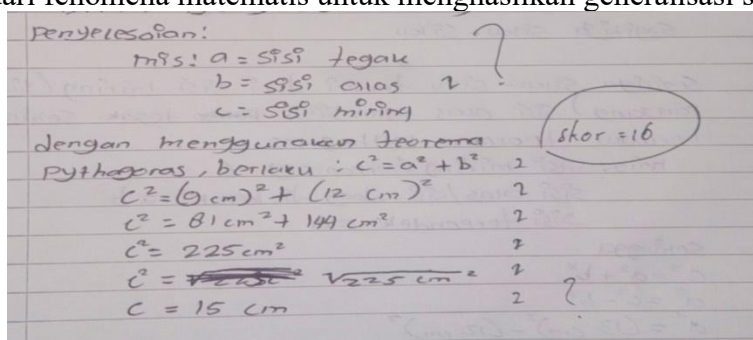 dari fenomena matematis untuk menghasilkan generalisasi s
Penyelesaian:
mis: a = sisi tegak
b = sisi alas 2
c = sisi miring
?
skor = 16
dengan menggunakan teorema
pythagoras, berlaku : c² = a² + b² 2
c² = (9 cm)² + (12 cm)² 2
c² = 81 cm² + 144 cm² 2
c² = 225 cm² 2
c² = √225 cm² 2
c = 15 cm 2 ?